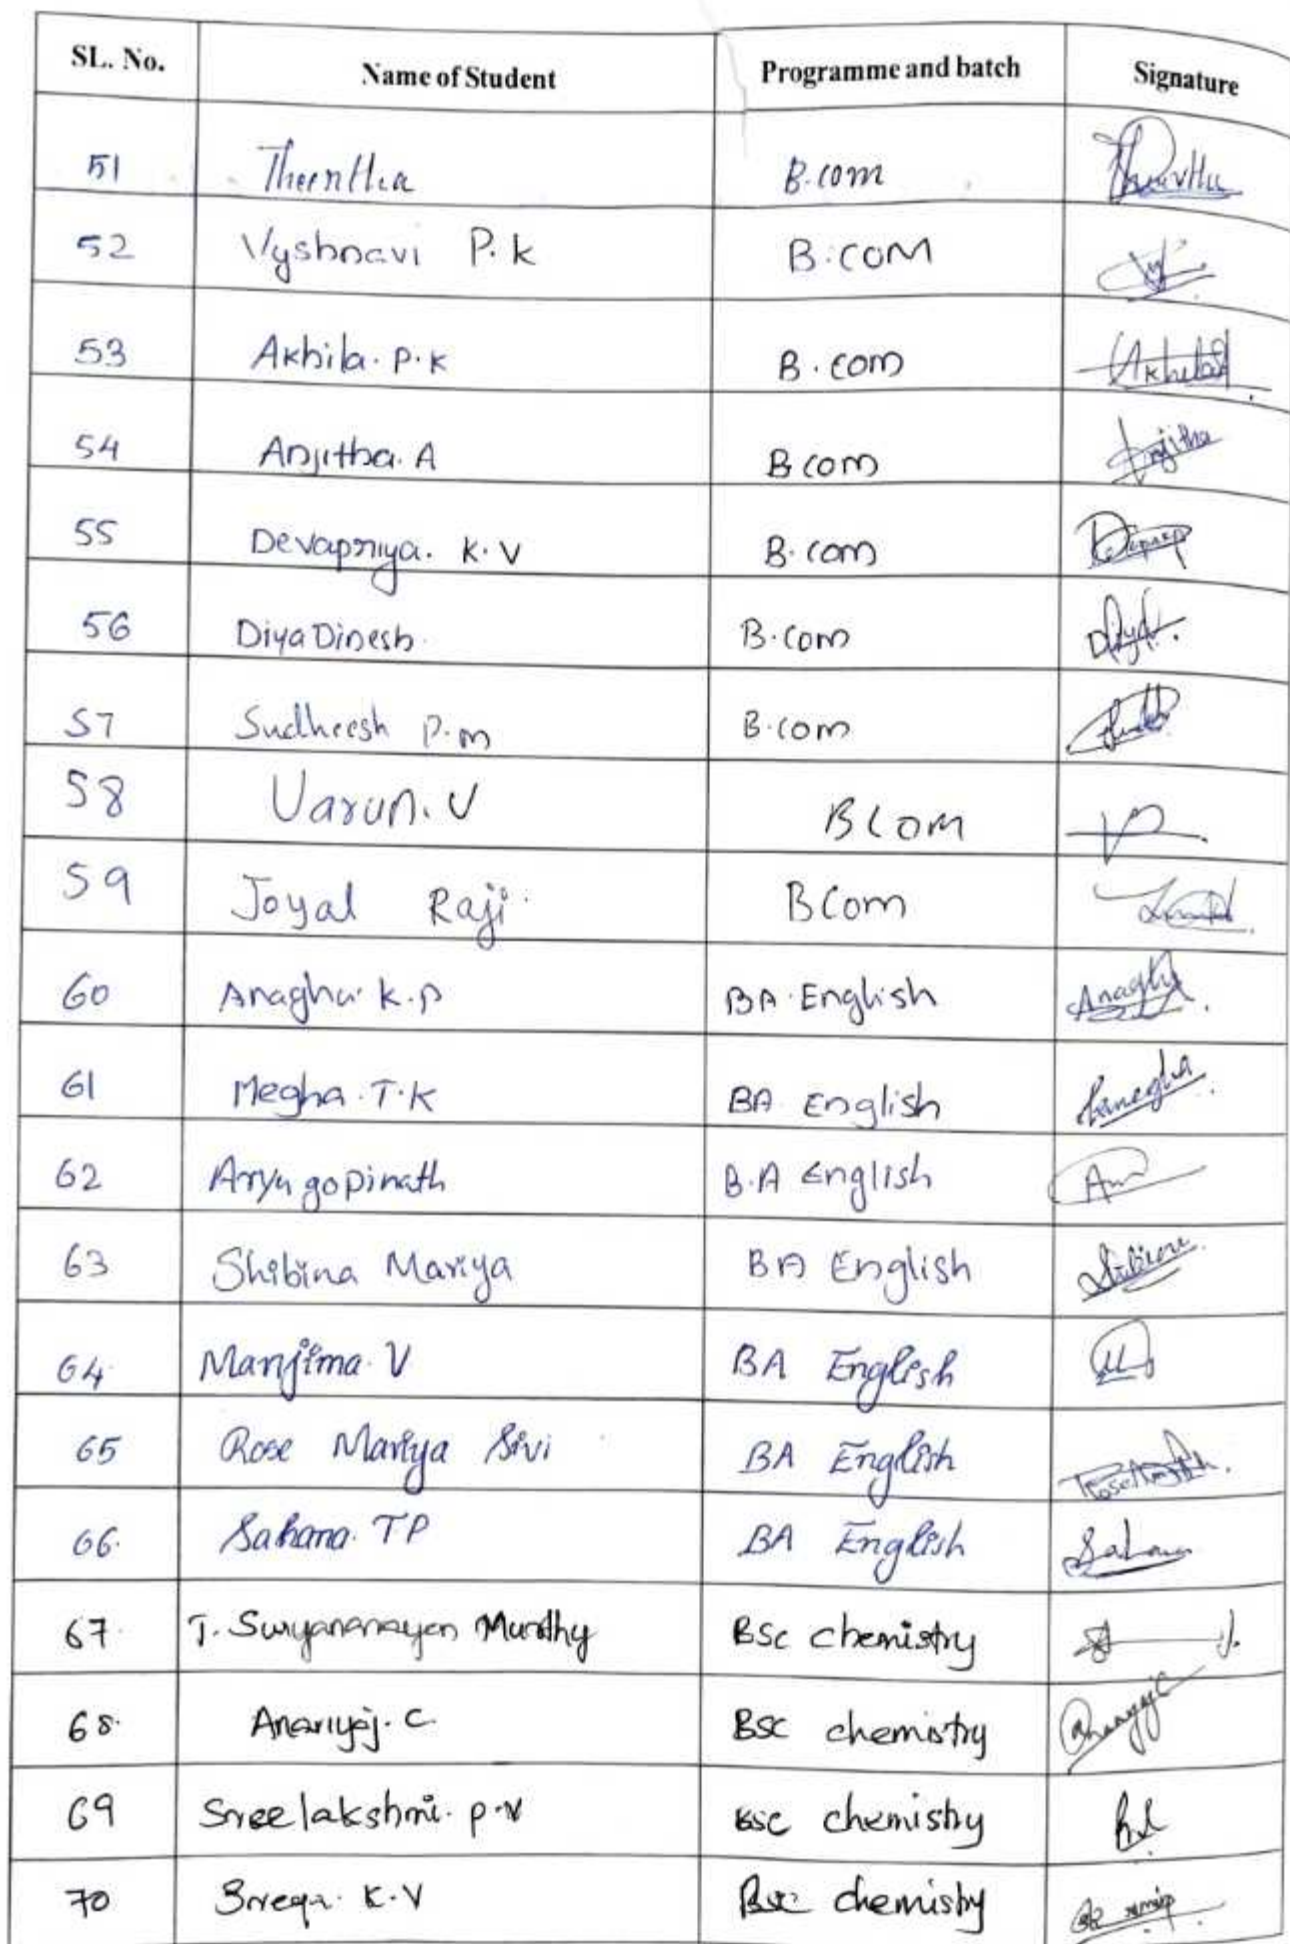 SL. No. Name of Student Programme and batch Signature
51 B.com
52 Vyshnavi P.K B.COM
53 Akhila. P.K B.com Akhila
54 Anjitha. A B com Anjitha
55 Devapriya. K.V B.com
56 Diya Dinesh. B.com Diya
57 Sudheesh P.m B.com
58 Varun. V BCom
59 Joyal Raji. BCom
60 Anagha. K.P BA English Anagha
61 Megha. T.K BA English
62 Arya gopinath B.A English
63 Shibina Mariya BA English
64. Manjima. V BA English
65 Rose Mariya Sivi BA English
66. Sahana. TP BA English Sahana
67. T. BSc chemistry
68. C. BSC chemistry
69 Sreelakshmi. P.V BSC chemistry
70 K.V BSC chemistry